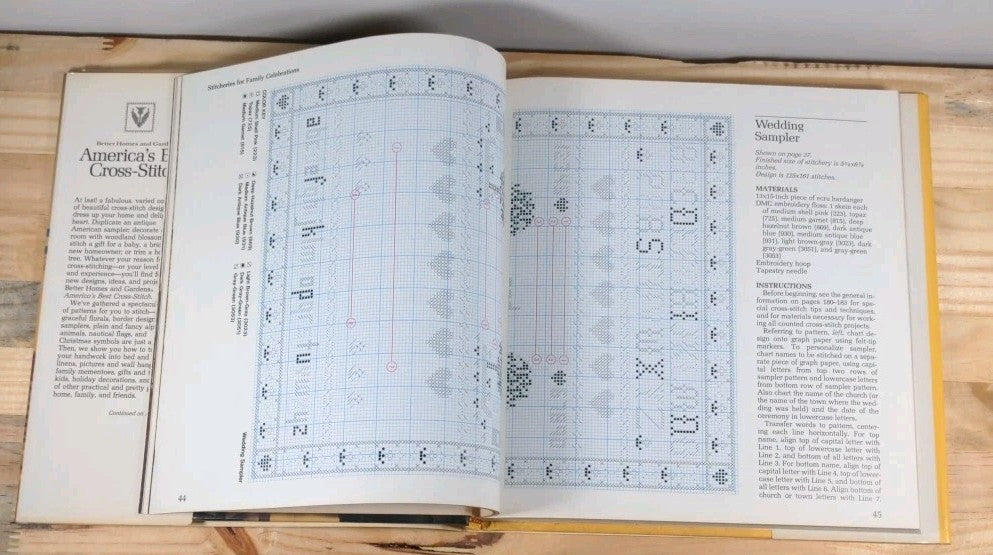 Better Homes and Gard
America's B
Cross-Stitc
At last! a fabulous, varied co
of beautiful cross-stitch desig
dress up your home and deli
heart. Duplicate an antique
American sampler; decorate
room with woodland blossom
stitch a gift for a baby, a bric
new homeowner; or trim a ho
tree. Whatever your reason f
cross-stitching—or your level
and experience—you'll find
new designs, ideas, and proje
Better Homes and Gardens
America's Best Cross-Stitch.
We've gathered a spectacu
of patterns for you to stitch—
graceful florals, border design
samplers, plain and fancy alp
animals, nautical flags, and
Christmas symbols are just a
Then, we show you how to t
your handwork into bed and
linens, pictures and wall hang
family mementoes, gifts and
kids, holiday decorations, and
of other practical and pretty
home, family, and friends.
Continued on
Stitcheries for Family Celebrations
COLOR KEY
Medium Shell Pink (223)
Topaz (725)
Medium Garnet (815)
Deep Hazelnut Brown (869)
Medium Antique Blue (931)
Dark Antique Blue (930)
Light Brown-Gray (3023)
Dark Gray-Green (3051)
Gray-Green (3053)
Wedding Sampler
44
Wedding
Sampler
Shown on page 37.
Finished size of stitchery is
inches.
Design is 125x161 stitches.
MATERIALS
13x15-inch piece of ecru hardanger
DMC embroidery floss: 1 skein each
of medium shell pink (223), topaz
(725), medium garnet (815), deep
hazelnut brown (869), dark antique
blue (930), medium antique blue
(931), light brown-gray (3023), dark
gray-green (3051), and gray-green
(3053)
Embroidery hoop
Tapestry needle
INSTRUCTIONS
Before beginning, see the general in-
formation on pages 180-183 for spe-
cial cross-stitch tips and techniques,
and for materials necessary for work-
ing all counted cross-stitch projects.
Referring to pattern, left, chart de-
sign onto graph paper using felt-tip
markers. To personalize sampler,
chart names to be stitched on a sepa-
rate piece of graph paper, using capi-
tal letters from top two rows of
sampler pattern and lowercase letters
from bottom row of sampler pattern.
Also chart the name of the church (or
the name of the town where the wed-
ding was held) and the date of the
ceremony in lowercase letters.
Transfer words to pattern, center-
ing each line horizontally. For top
name, align top of capital letter with
Line 1, top of lowercase letter with
Line 2, and bottom of all letters with
Line 3. For bottom name, align top of
capital letter with Line 4, top of lower-
case letter with Line 5, and bottom of
all letters with Line 6. Align bottom of
church or town letters with Line 7,
45